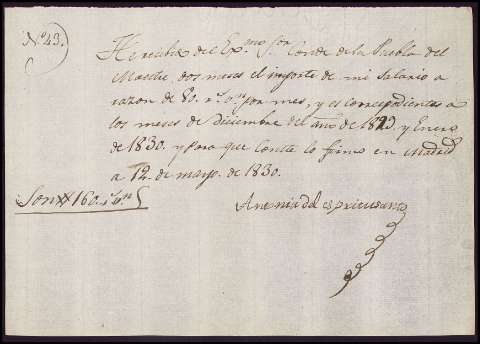 N.º 43.
He recibido del Ex.mo S.or Conde de la Puebla del
Maestre, dos meses el importe de mi Salario a
razon de 80. r.s v.n por mes, y es correspondientes a
los meses de Diciembre del año de 1829 y Enero
de 1830. y para que conste lo firmo en Madrid
a 12. de mayo. de 1830.
Son 160. r.s v.n
Antonia del